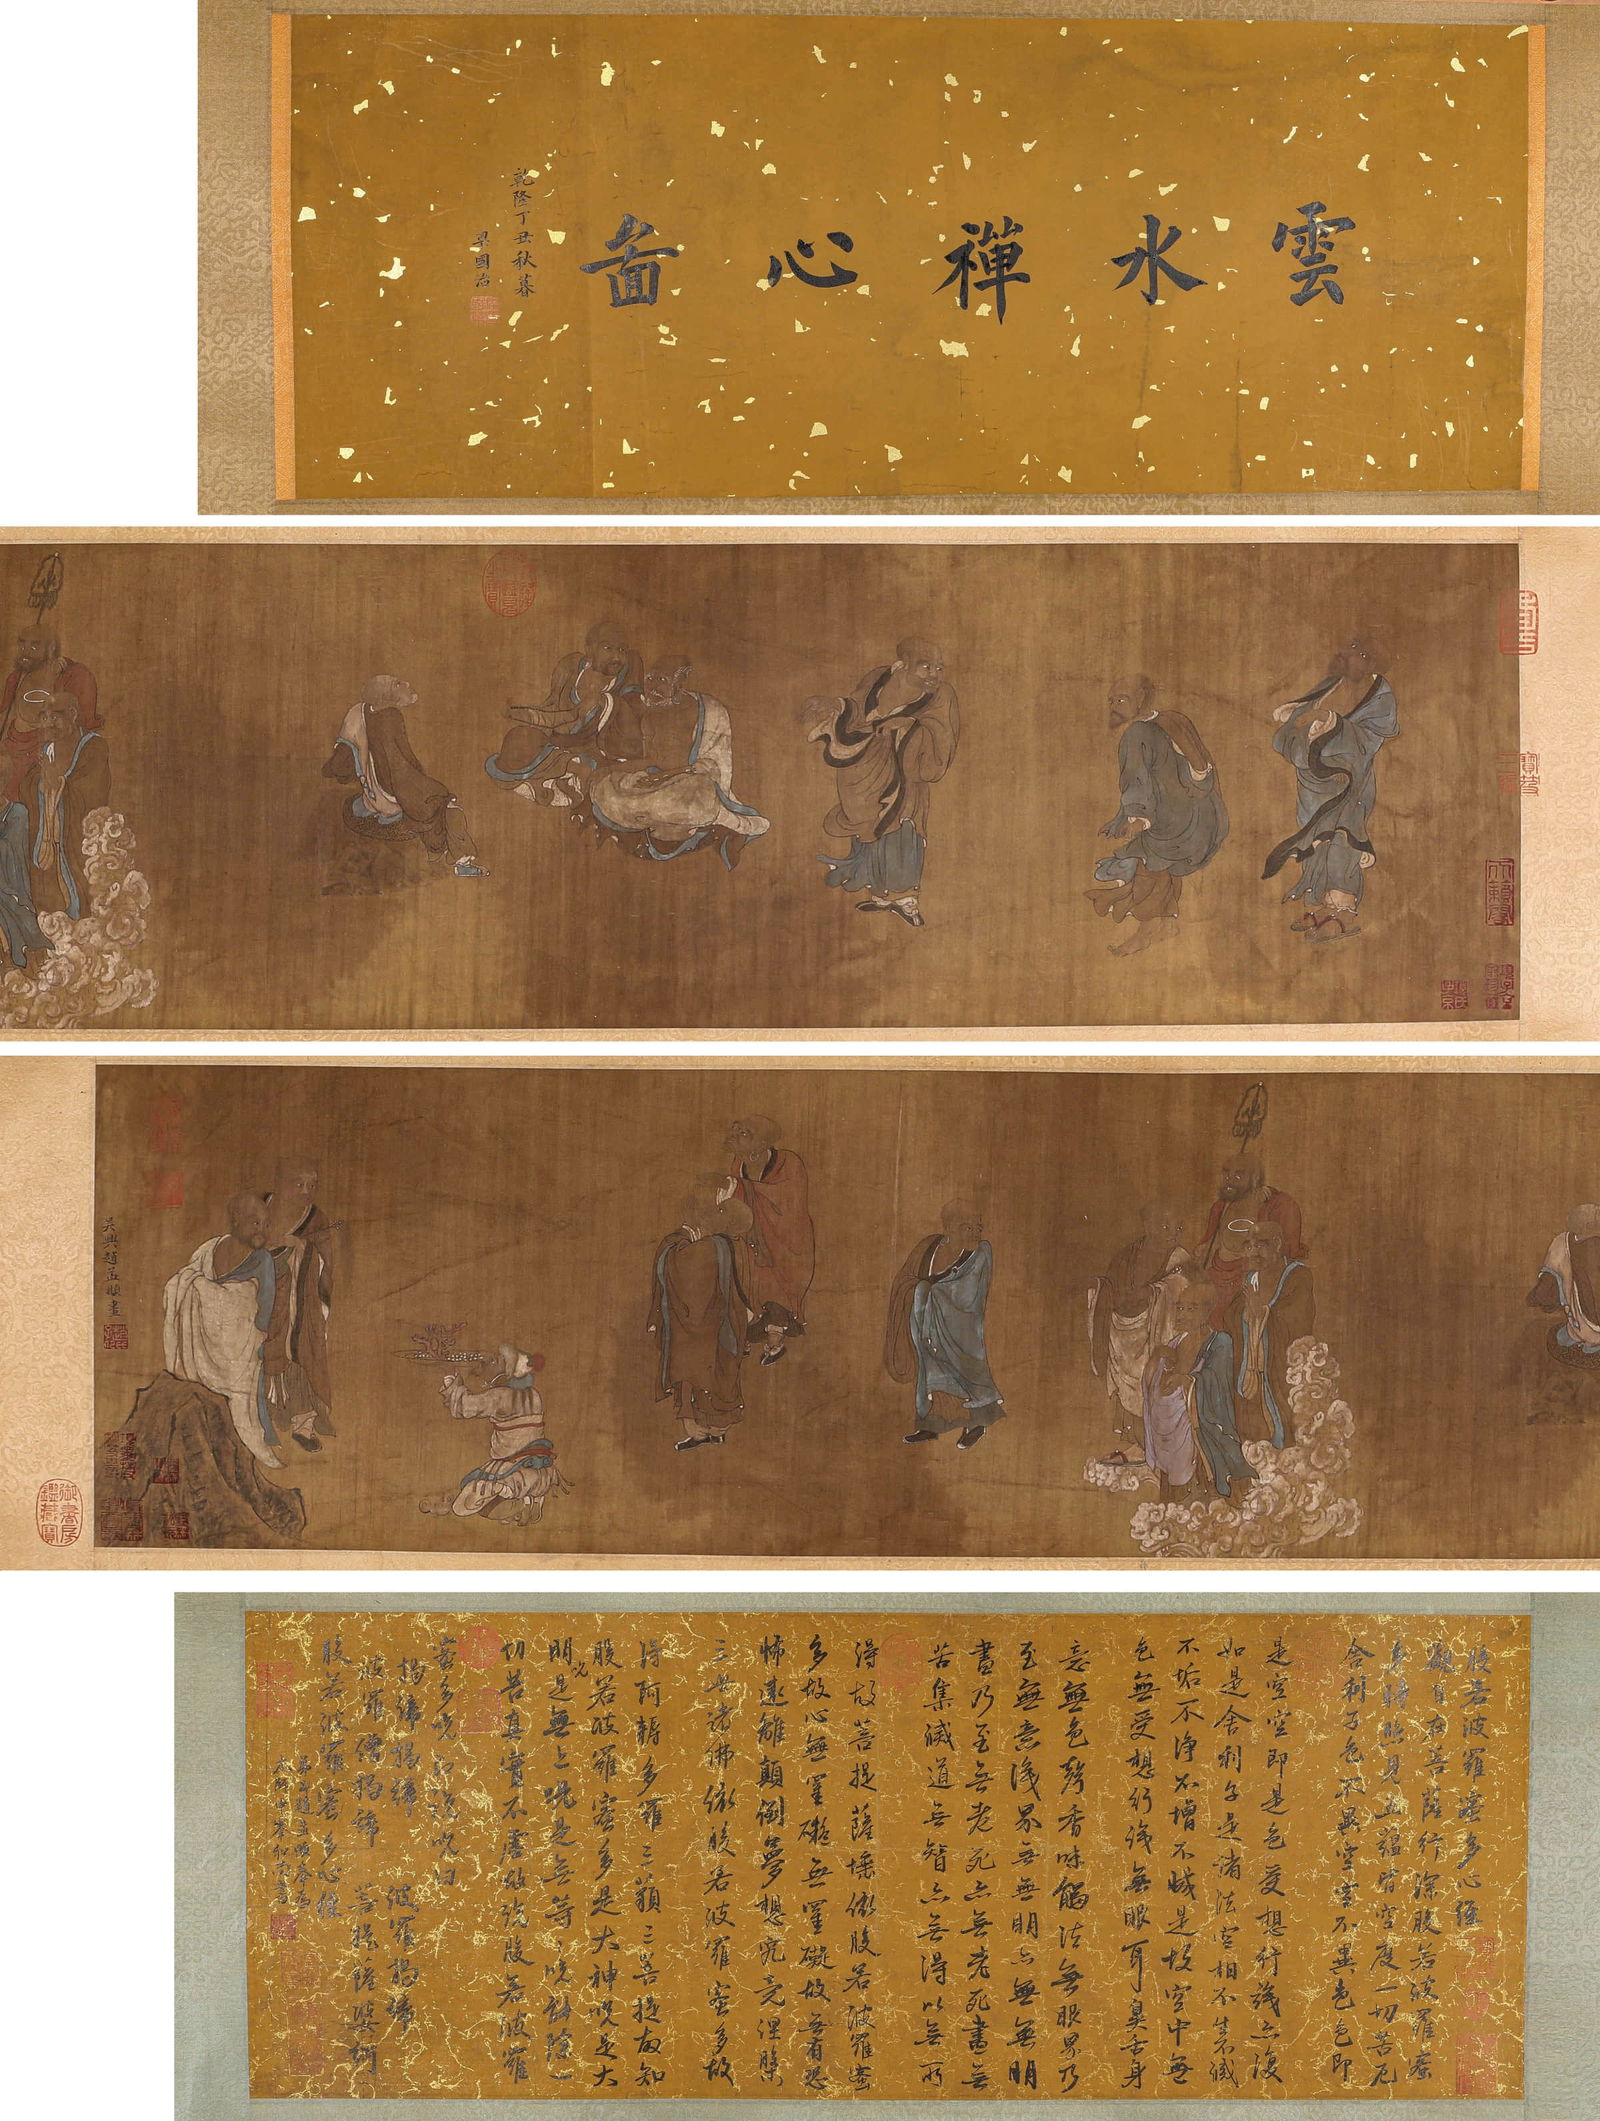 雲水禪心啚
乾隆丁丑秋暮
梁國治
吳興趙孟頫畫
御書房鑑藏寶
般若波羅蜜多心經
觀自在菩薩行深般若波羅蜜
多時照見五蘊皆空度一切苦厄
舍利子色不異空空不異色色即
是空空即是色受想行識亦復
如是舍利子是諸法空相不生不滅
不垢不淨不增不減是故空中無
色無受想行識無眼耳鼻舌身
意無色聲香味觸法無眼界乃
至無意識界無無明亦無無明
盡乃至無老死亦無老死盡無
苦集滅道無智亦無得以無所
得故菩提薩埵依般若波羅蜜
多故心無罣礙無罣礙故無有恐
怖遠離顛倒夢想究竟涅槃
三世諸佛依般若波羅蜜多故
得阿耨多羅三藐三菩提故知
般若波羅蜜多是大神咒是大
明咒是無上咒是無等等咒能除一
切苦真實不虛故說般若波羅
蜜多咒即說咒曰
揭諦揭諦 波羅揭諦
波羅僧揭諦 菩提薩婆訶
般若波羅蜜多心經
弟子趙孟頫奉為
本師中峯和尚書